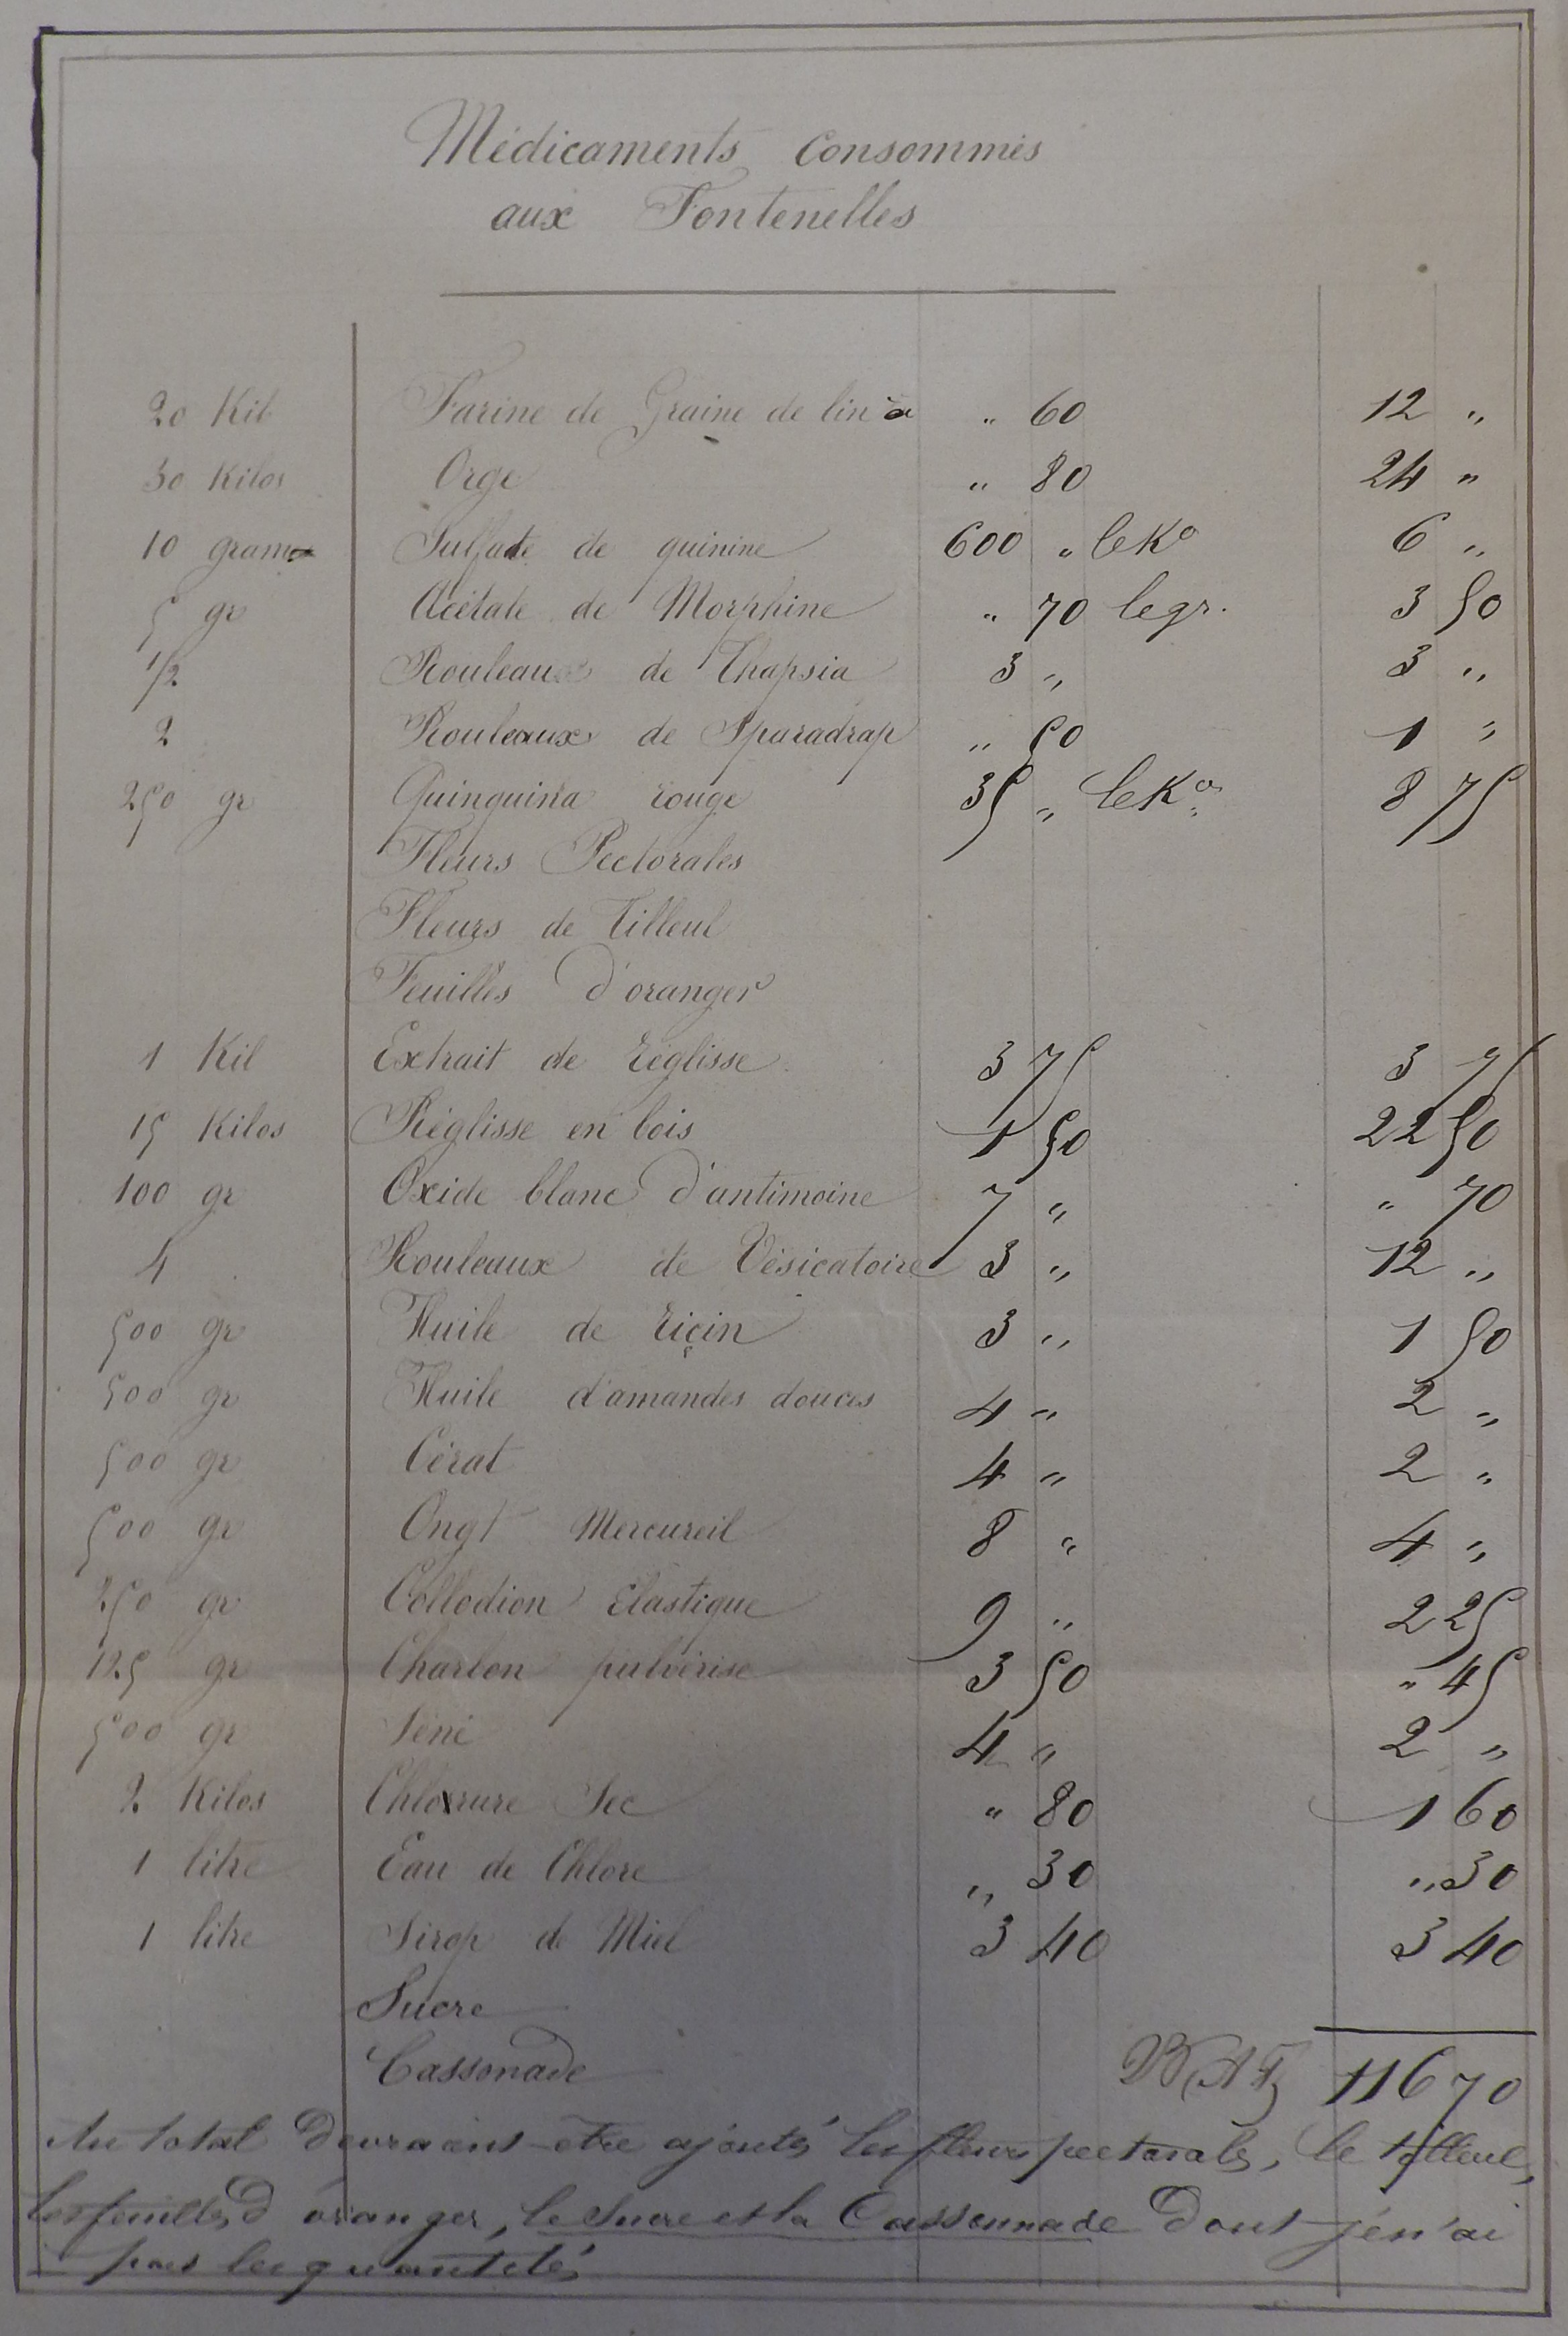 Médicaments Consommés
aux Fontenelles
20 Kil Farine de Graine de lin à " 60 12 "
30 Kilos Orge " 80 24 "
10 gram Sulfate de quinine 600 " le Ko 6 "
5 gr Acétate de Morphine " 70 le gr. 3 50
1/2 Rouleau de Thapsia 3 " 3 "
2 Rouleaux de Sparadrap " 50 1 "
250 gr Quinquina rouge 35 " le Ko 8 75
Fleurs Pectorales
Fleurs de Tilleul
Feuilles d'oranger
1 Kil Extrait de réglisse 3 75 3 75
15 Kilos Réglisse en bois 1 50 22 50
100 gr Oxide blanc d'antimoine 7 " " 70
4 Rouleaux de Vésicatoire 3 " 12 "
500 gr Huile de riçin 3 " 1 50
500 gr Huile d'amandes douces 4 " 2 "
500 gr Cérat 4 " 2 "
500 gr Ongt Mercureil 8 " 4 "
250 gr Collodion élastique 9 " 2 25
125 gr Charbon pulvérisé 3 50 " 45
500 gr Séné 4 " 2 "
2 Kilos Chlorure Sec " 80 1 60
1 litre Eau de Chlore " 30 " 30
1 litre Sirop de Miel 3 40 3 40
Sucre
Cassonade 116 70
Au total devraient être ajoutés les fleurs pectorales, le tilleul,
les feuilles d'oranger, le Sucre et la Cassonnade dont je n'ai
pas les quantités